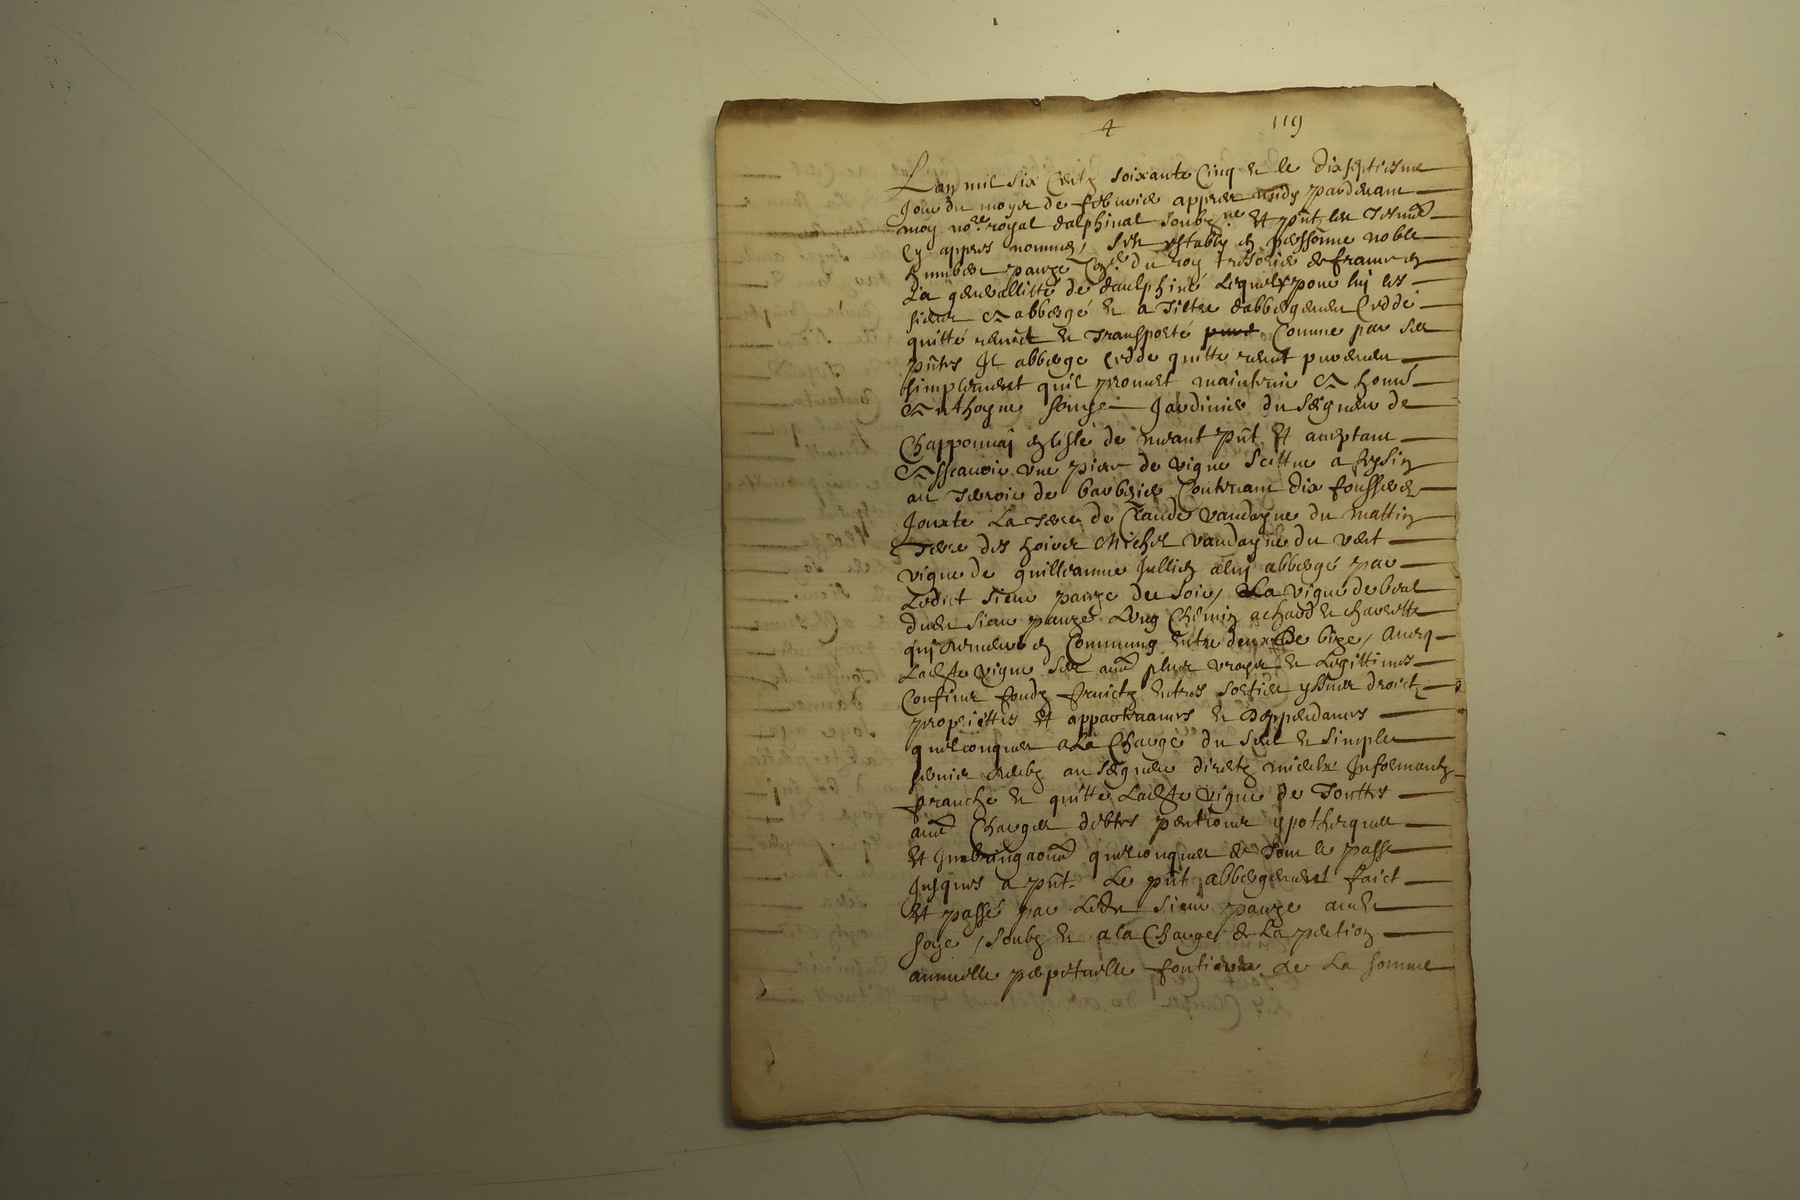 4 119
Lan mil six centz soixante cinq et le dixseptiesme
Jour du moys de febvrier appres midy pardevant
moy no.re royal dalphinal soubz.ne et pnt les tesmo
cy appres nommes, sest estably en personne noble
pauze con.er du roy tresorier de france en
la generallitté de daulphiné lequel pour luy les
siens a abbergé et a tiltre dabbergement ceddé
quitté remit et transporté comme par ses
pntes Il abberge cedde quitte remet purement
simplement quil promet maintenir a honné
anthoyne Jardinier du seigneur de
Chapponnay en lisle de pnt et acceptant
asscavoir une piece de vigne scittue a feysin
au terroir de contenant dix fosserees
Jouxte la terre de Claude vandayne du mattin
terre des hoirs Michel vandayne du vent
vigne de guilleaume Jullien aluy abbergé par
Ledict sieur pauze du soir, La vigne de
dudit sieur pauze Long Chemin a chard et charrette
qui en commung entre deux de bize, avecq
Ladite vigne ses au plus vrayes et Legittimes
Confins fondz fruictz entres sorties yssues droictz
proprietés et appartenances et deppendances
quelconques a La Charge du seul et simple
au seigneur directz Informantz
franche et quitte Ladite vigne de touttes
au Charges debtes pentions ypotheques
et quelconques de tout le passe
Jusques a pnt. Le pnt abbergement faict
et passé par Ledit sieur pauze audit
soubz et a la Charge de La pention
annuelle perpetuelle de La somme